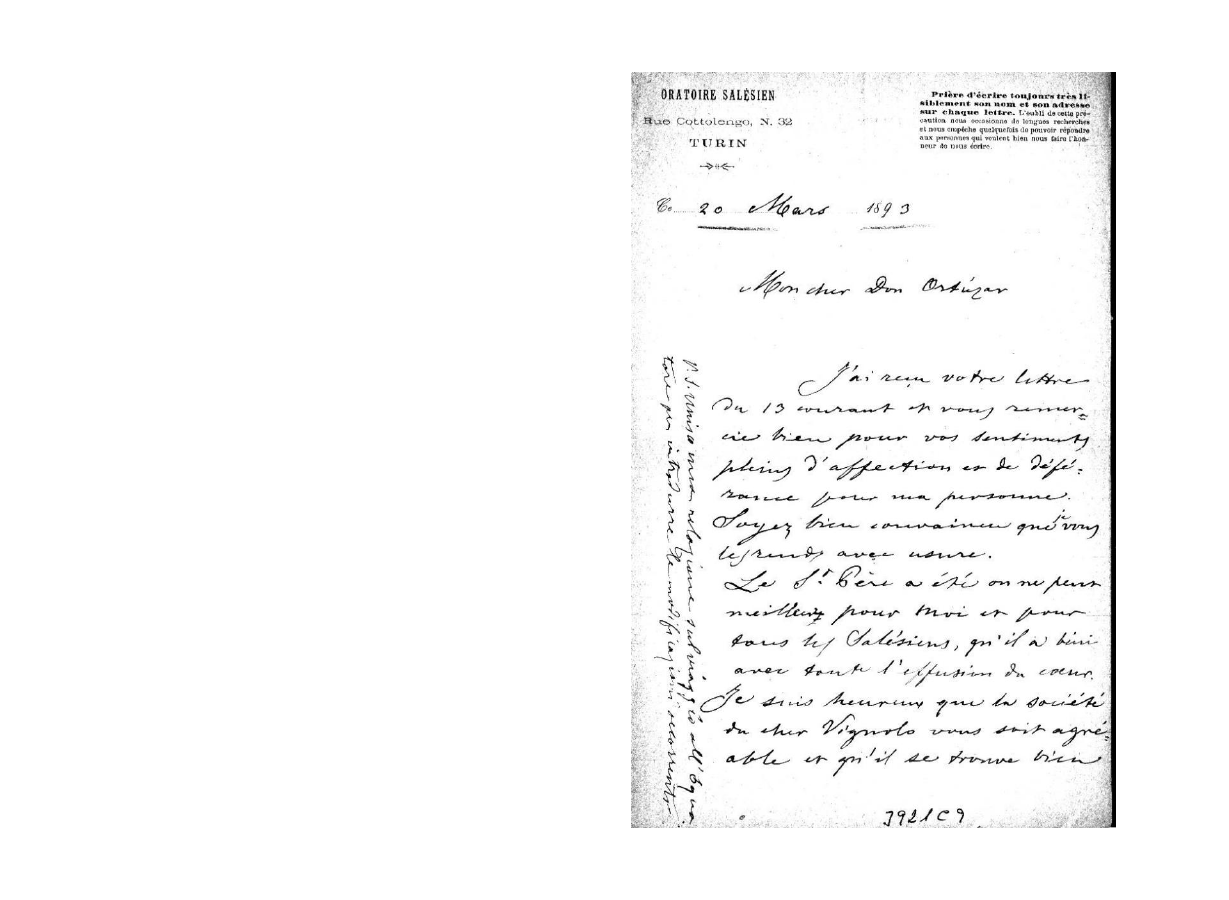 ORATOIRE SALÉSIEN
Rue Cottolengo, N. 32
TURIN
Prière d'écrire toujours très li-
siblement son nom et son adresse
sur chaque lettre. L'oubli de cette pré-
caution nous occasionne de longues recherches
et nous empêche quelquefois de pouvoir répondre
aux personnes qui veulent bien nous faire l'hon-
neur de nous écrire.
Ce 20 Mars 1893
Mon cher Don Ortúzar
J'ai reçu votre lettre
du 13 courant et vous remer-
cie bien pour vos sentiments
pleins d'affection et de défé-
rance pour ma personne.
Soyez bien convaincu que je vous
les rends avec usure.
Le St Père a été on ne peut
meilleur pour moi et pour
tous les Salésiens, qu'il a béni
avec toute l'effusion du cœur.
Je suis heureux que la société
du cher Vignolo vous soit agré-
able et qu'il se trouve bien
P.S. Unisco una relazione sul viaggio all'Equa
tore per introdurre le modificazioni occorrenti.
3921C9